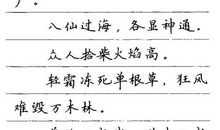 ）。
八仙过海，各显神通。
众人拾柴火焰高。
轻霜冻死单根草，狂风
难毁万木林。